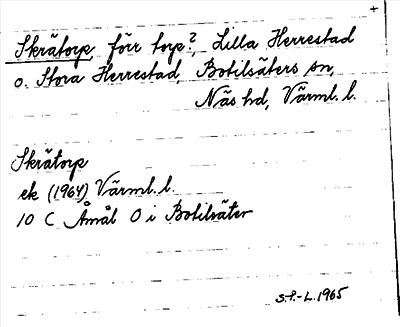 +
Skrätorp, förr torp?, Lilla Herrestad
o. Stora Herrestad, Botilsäters sn,
Näs hd, Värml. l.
Skrätorp
ek (1964) Värml. l.
10 C Åmål O i Botilsäter
S.P.-L. 1965